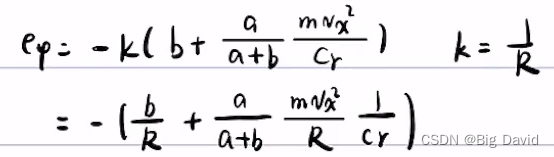 eφ = -k( b + a/(a+b) mVx²/Cr )   k = 1/R
= -( b/R + a/(a+b) mVx²/R 1/Cr )
CSDN @Big David